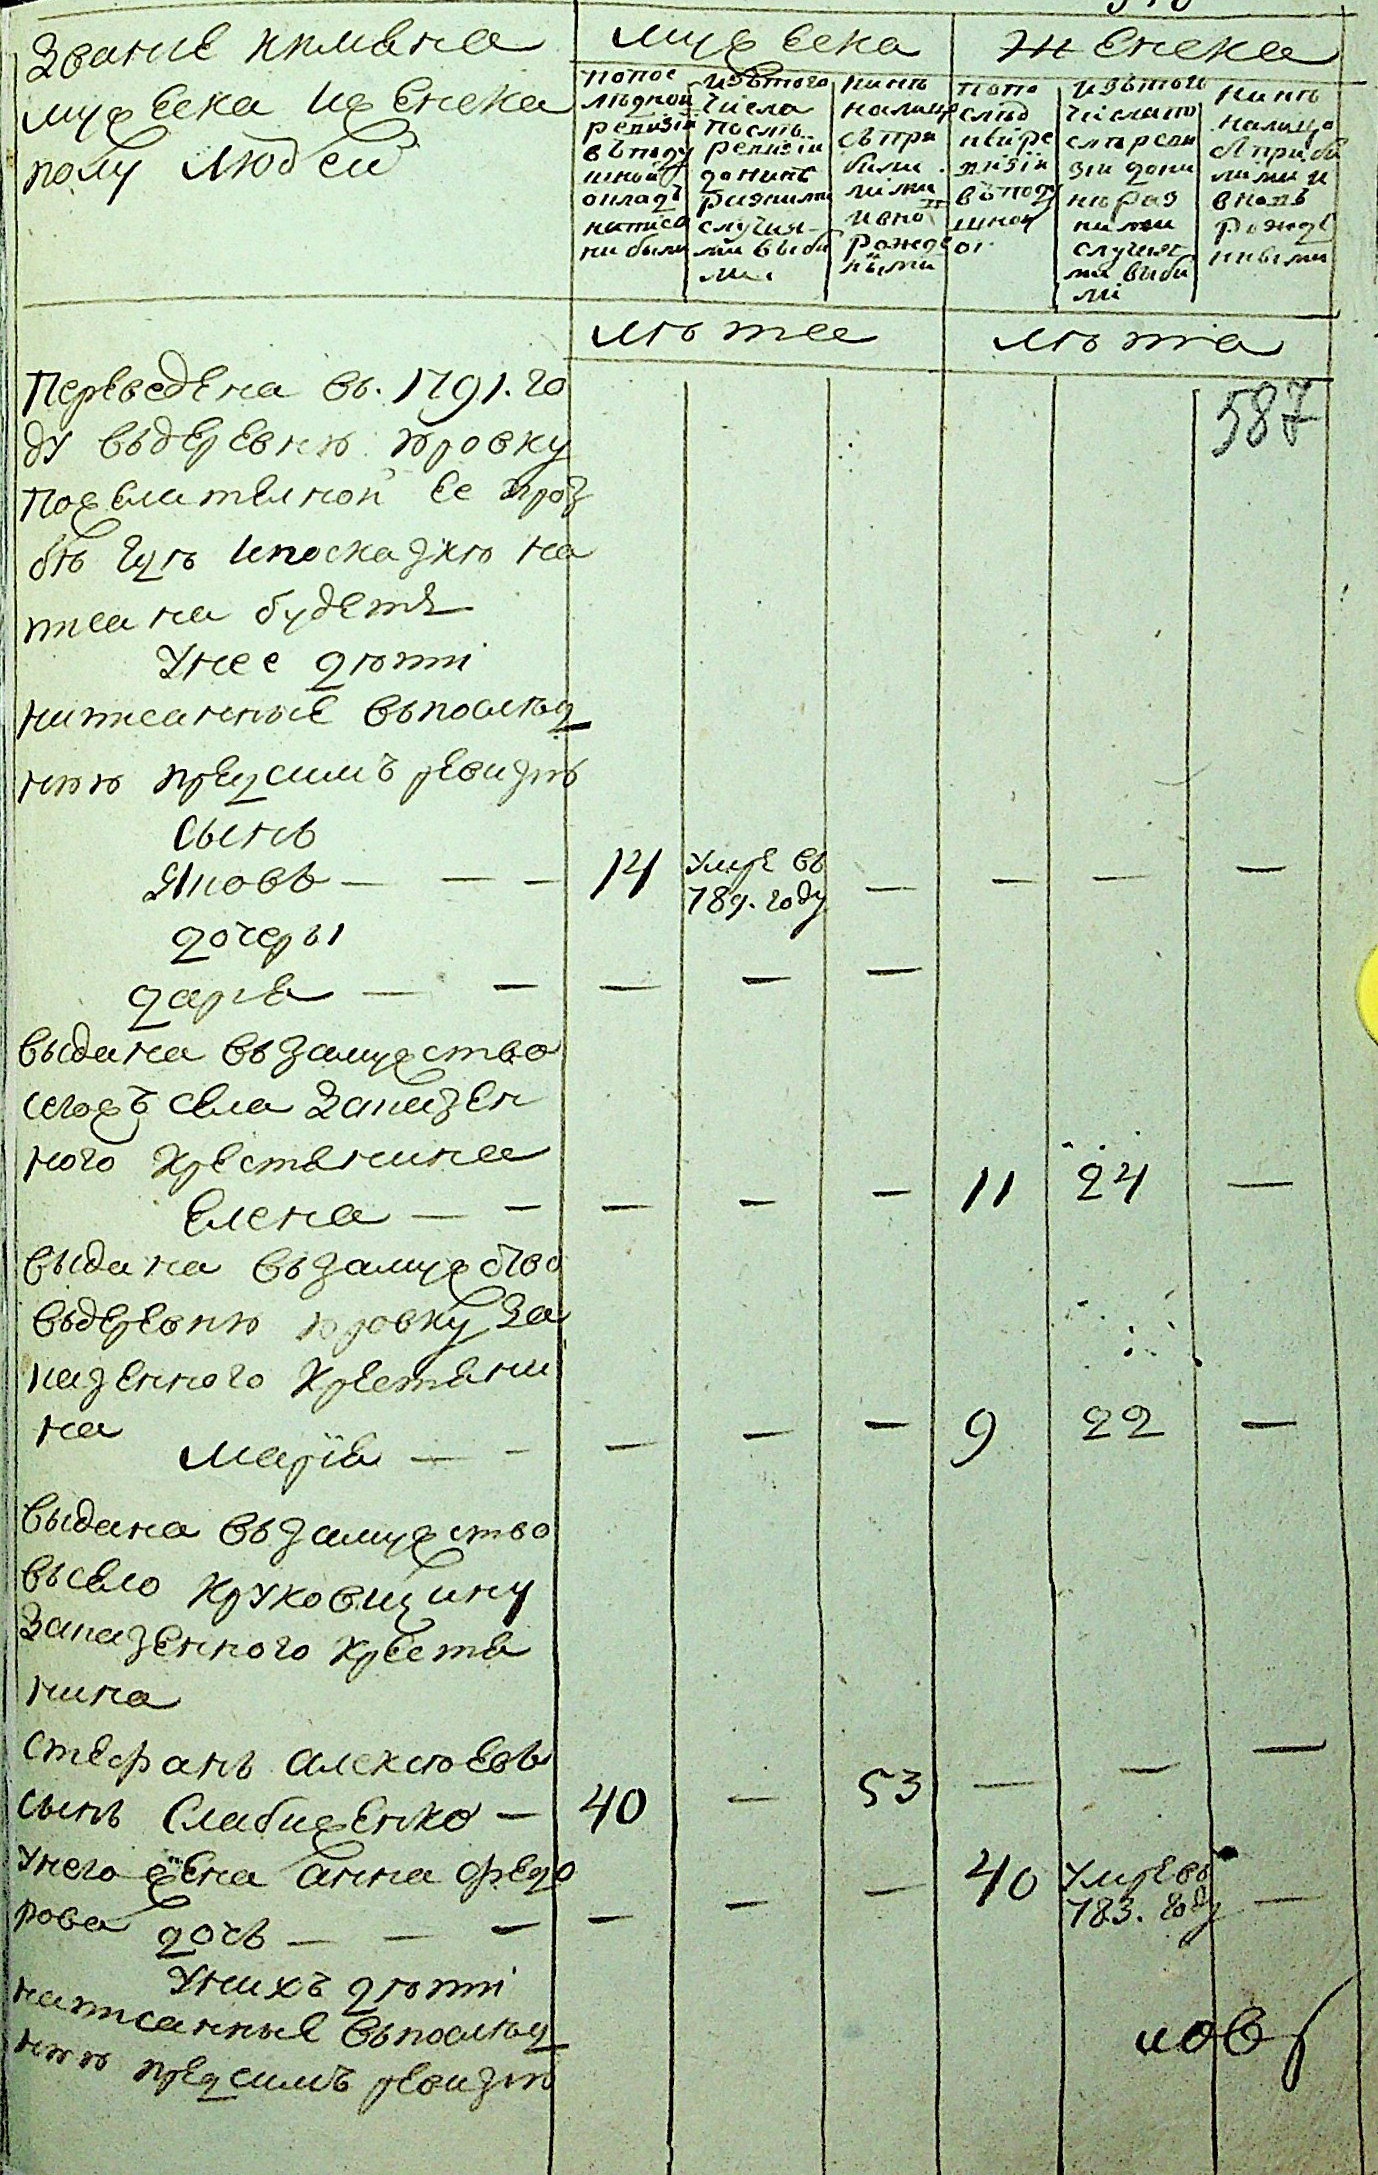 Звание и имена
мужеска и женска
полу людей
мужеска
женска
попос
лѣдной
ревизіи
въ поду
шной
окладъ
написа
ни были
изътого
числа
послѣ
ревизіи
донине
разними
случия
ми выбы
ли
нинѣ
налице
съ при
были
ми
и вно
рожде
ными
попо
слѣд
ней ре
визіи
въ поду
шной
ок
изътого
числа по
слѣ реви
зіи дони
нѣ раз
ними
случия
ми выбы
лі
нинѣ
налицо
съ прибы
лими и
вновь
рожде
нными
лѣта
лѣта
587
Переведена въ 1791. го
ду въ деревню Юровку
пожелателной ее проз
бѣ гдѣ и по сказкѣ на
писана будетъ
У нее дѣти
написанные въ послѣд
нѣю предсимъ ревизѣю
сынъ
Яковъ — — —
14
умре въ
789. году
— — — —
дочеры
Дарья — — — — —
выдана въ замужество
сегожъ села за казен
ного крестянина
11 24 —
Елена — — — — —
выдана въ замужство
въ деревню Юровку за
казенного крестяни
на
9 22 —
Марія — — — — —
выдана въ замужество
въ село Круковщину
за казенного крестя
нина
Стефанъ Алексѣевъ
сынъ Слабиженко — 40 — 53 — — —
У него жена Анна Федо
рова дочь — — — — — —
40
умре въ
783. году
—
У нихъ дѣти
написанные въ послѣд
нѣю предсимъ ревизѣю